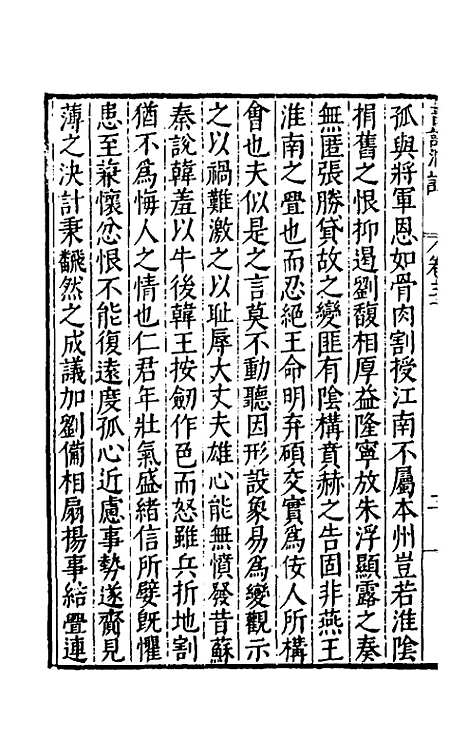 孤與將軍恩如骨肉割授江南不屬本州豈若淮隂
捐舊之恨抑遏劉馥相厚益隆寧放朱浮顯露之奏
無匿張勝貸故之變匪有隂構賁赫之告固非燕王
淮南之舋也而忍絕王命明弃碩交實為佞人所構
會也夫似是之言莫不動聽因形設象易為變觀示
之以禍難激之以耻辱大丈夫雄心能無憤發昔蘇
秦說韓羞以牛後韓王按劒作色而怒雖兵折地割
猶不為悔人之情也仁君年壯氣盛緒信所嬖旣懼
患至兼懷忿恨不能復遠度孤心近慮事勢遂齎見
薄之決計秉翻然之成議加劉備相扇揚事結舋連
卷三